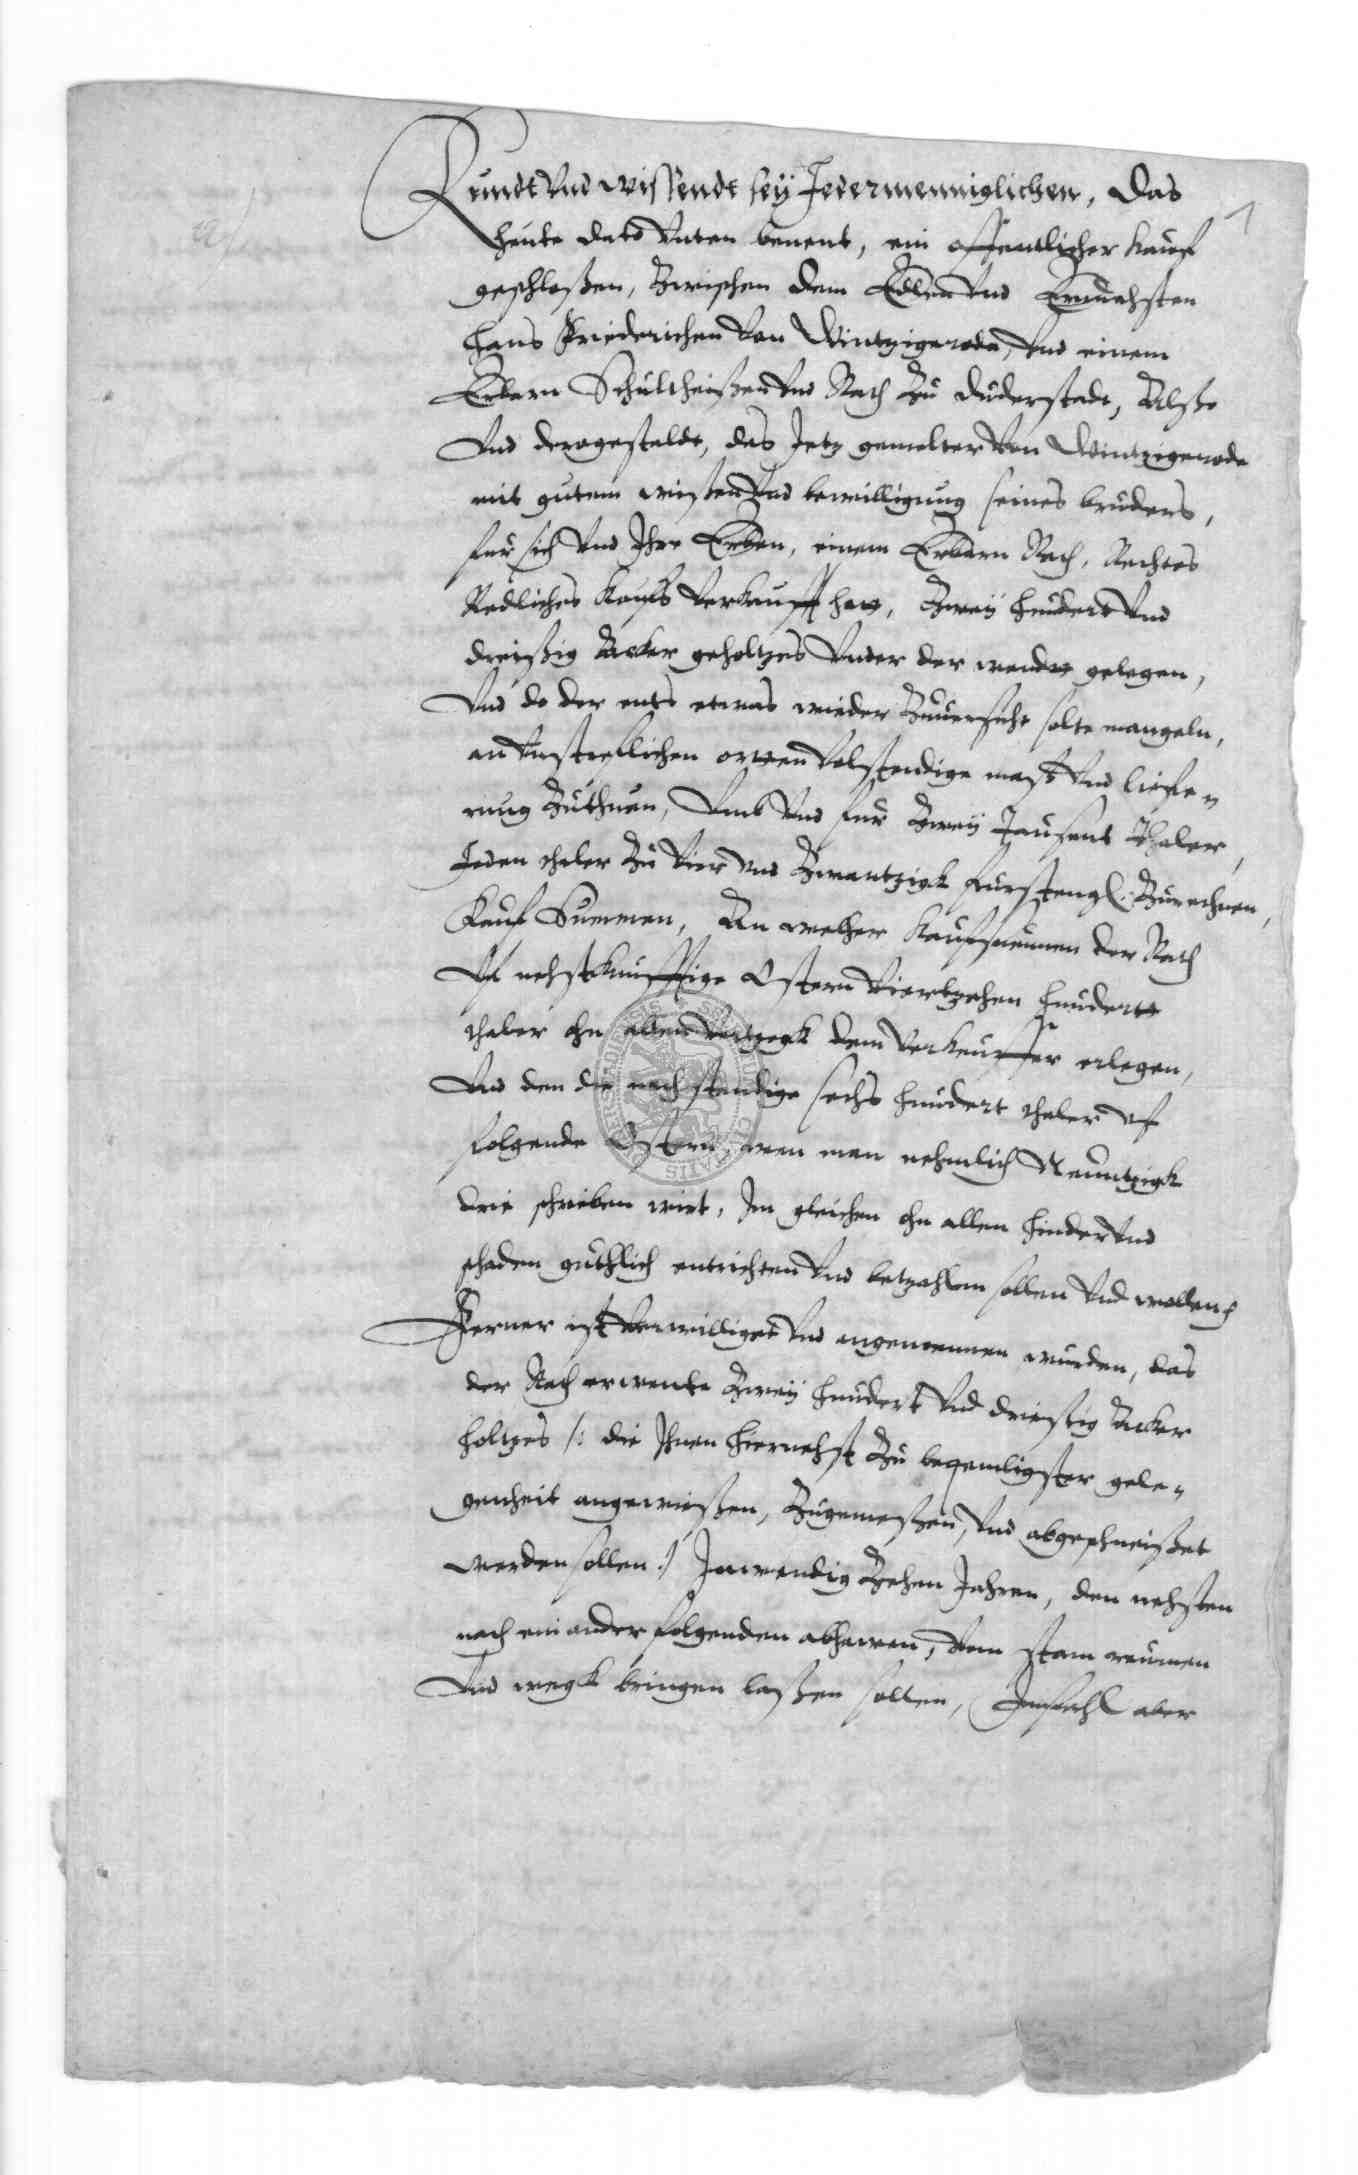 Kundt vnd wissendt seÿ Jedermenniglichen, das
heute dato vnten benent, ein offentlicher Kauf
geschloßen, Zwischen dem Edlen vnd Ernuehsten
Hans Friederichen von Wintzigeroda, vnd einem
Erbarn Schultheißen vnd Rath Zu Duderstadt, Alßo
vnd deragestaldt, das Jetz gemelter von Wintzigeroda
mit gutem wißen vnd bewilligung seines bruders,
fur sich vnd Ihre Erben, einem Erbarn Rath, Rechtes
Redliches Kaufs verkaufft hatt, Zweÿ hundert vnd
dreißig Acker geholtzes vnder der wende gelegen,
vnd do der ents etwas wieder Zuuersicht solte mangeln,
an vnstreflichen orten volstendige maß vnd liefe„
rung Zuthun, vmb vnd fur Zweÿ Tausent Thaler,
Jeden thaler Zu vier vnd Zwantzigk furstengl. Zurechnen,
Kauf Summen, An welcher Kaufsummen der Rath
vf nehstkunfftige Ostern viertzehen hundertt
thaler ohn allen vertzogk dem verkeuffer erlegen,
vnd den die nachstendige sechs hundert thaler vf
folgende Ostern, wen man nehmlich Neuntzigk
drei schreiben wirt, Im gleichen ohn allen hinder vnd
schaden guthlich entrichten vnd betzahlen sollen vnd wollen
Ferner ist bewilliget vnd angenommen wurden, das
der Rath erwente Zweÿ hundert vnd driesig Acker
holtzes /: die Ihnen hiernehst Zu beqemligster gele„
genheit angewießen, Zugemeßen, vnd abgeschneißet
werden sollen :/ Inwendig Zehen Jahren, den nehsten
nach einander folgenden abhawen, vom stam reumen
vnd wegk bringen laßen solten, Imfahl aber